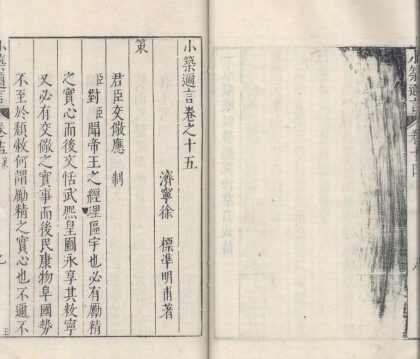 小築邇言 卷十四
小築邇言卷之十五
濟寧徐 標準明甫著
策
君臣交儆應 制
臣對臣聞帝王之經理區宇也必有勵精
之實心而後文恬武熙皇圖永享其敉寧
又必有交儆之實事而後民康物阜國勢
不至於頹敝何謂勵精之實心也不邇不
小築邇言 卷十五 策